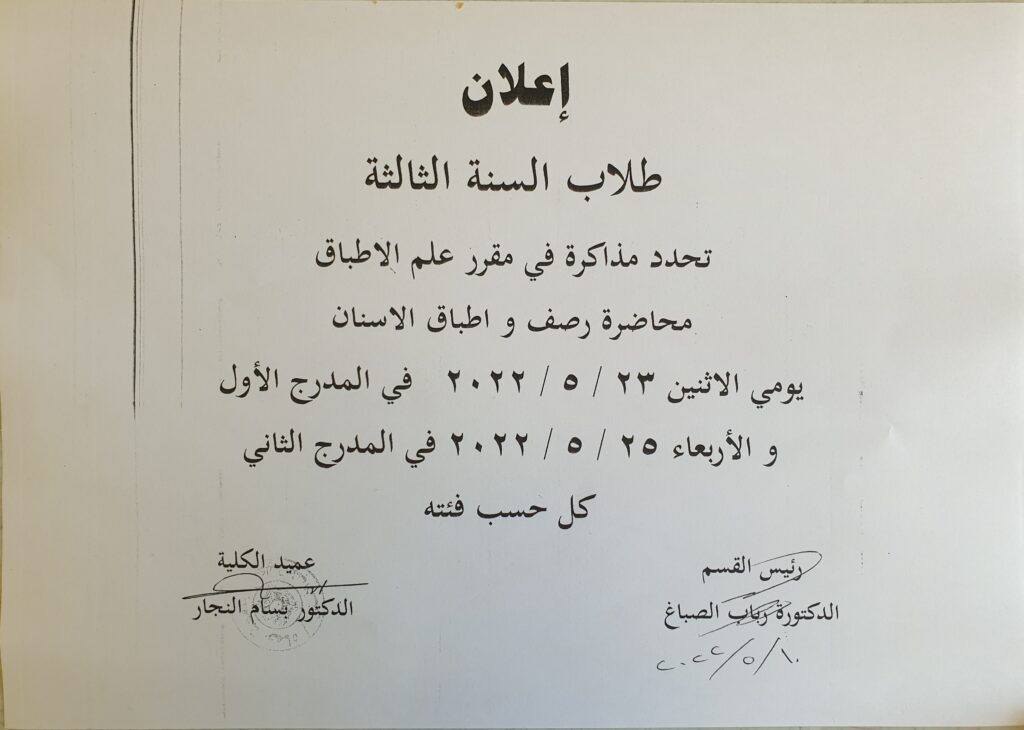 إعلان
طلاب السنة الثالثة
تحدد مذاكرة في مقرر علم الاطباق
محاضرة رصف و اطباق الاسنان
يومي الاثنين ٢٣ / ٥ / ٢٠٢٢ في المدرج الأول
و الأربعاء ٢٥ / ٥ / ٢٠٢٢ في المدرج الثاني
كل حسب فئته
رئيس القسم
الدكتورة رباب الصباغ
٢٠٢٢/٥/١٠
عميد الكلية
الدكتور بسام النجار